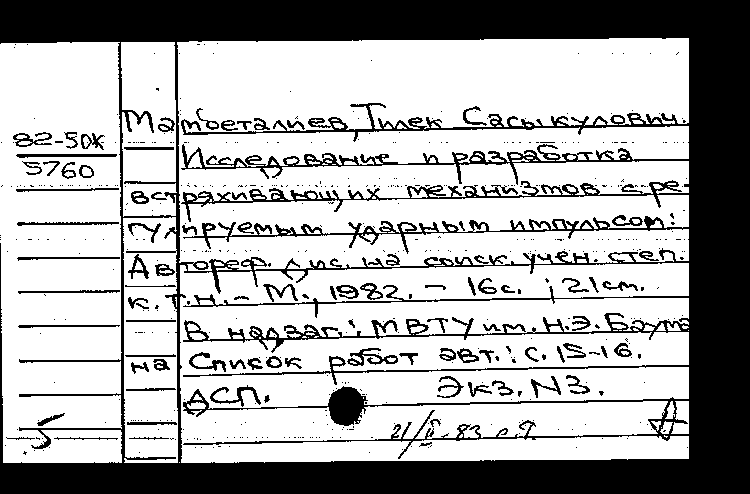 82-50К
5760
Матоеталиев, Тилек Сасыкулович.
Исследование и разработка
встряхивающих механизмов с ре-
гулируемым ударным импульсом:
Автореф. дис. на соиск. учен. степ.
к.т.н. - М., 1982. - 16с. ; 21см.
В надзаг.: МВТУ им. Н.Э. Баума
на Список работ авт.: с. 15-16.
ДСП. Экз. N3.
21/II-83
5